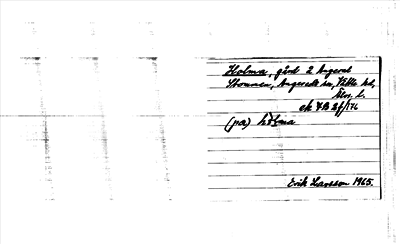 Holma, gård 2 Angered
Stommen, Angereds sn, Vättle hd,
Älvs. l.
ek 7:2 2f/176
(på) hòlma
Erik Larsson 1965.